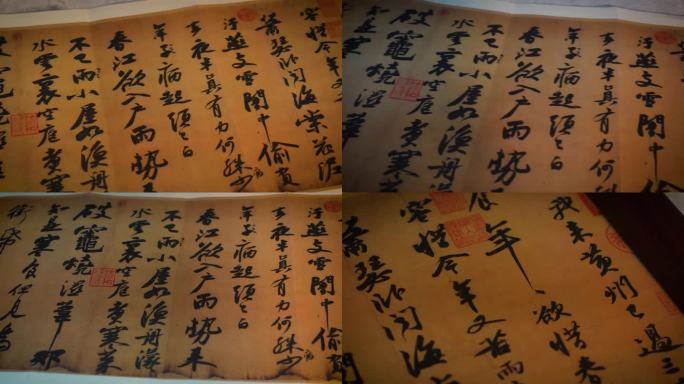 容惜今年又
蕭瑟臥聞海棠花泥
汙燕支雪闇中偷負
去夜半真有力何殊少
年子病起頭已白
春江欲入戶雨勢來
不已雨小屋如漁舟
水雲裏空庖煮寒菜
破竈燒溼
汙燕支雪闇中偷
去夜半真有力何殊
年子病起頭已白
春江欲入戶雨勢
不已雨小屋如漁舟
水雲裏空庖煮寒
破竈燒溼葦
知是寒
汙燕支雪闇中偷負
去夜半真有力何殊少
年子病起頭已白
春江欲入戶雨勢來
不已雨小屋如漁舟濛
水雲裏空庖煮寒菜
破竈燒溼葦那
知是寒食但見烏
銜帋
我來黃州已過三
食年欲惜春
容惜今年又苦雨
蕭瑟臥聞海